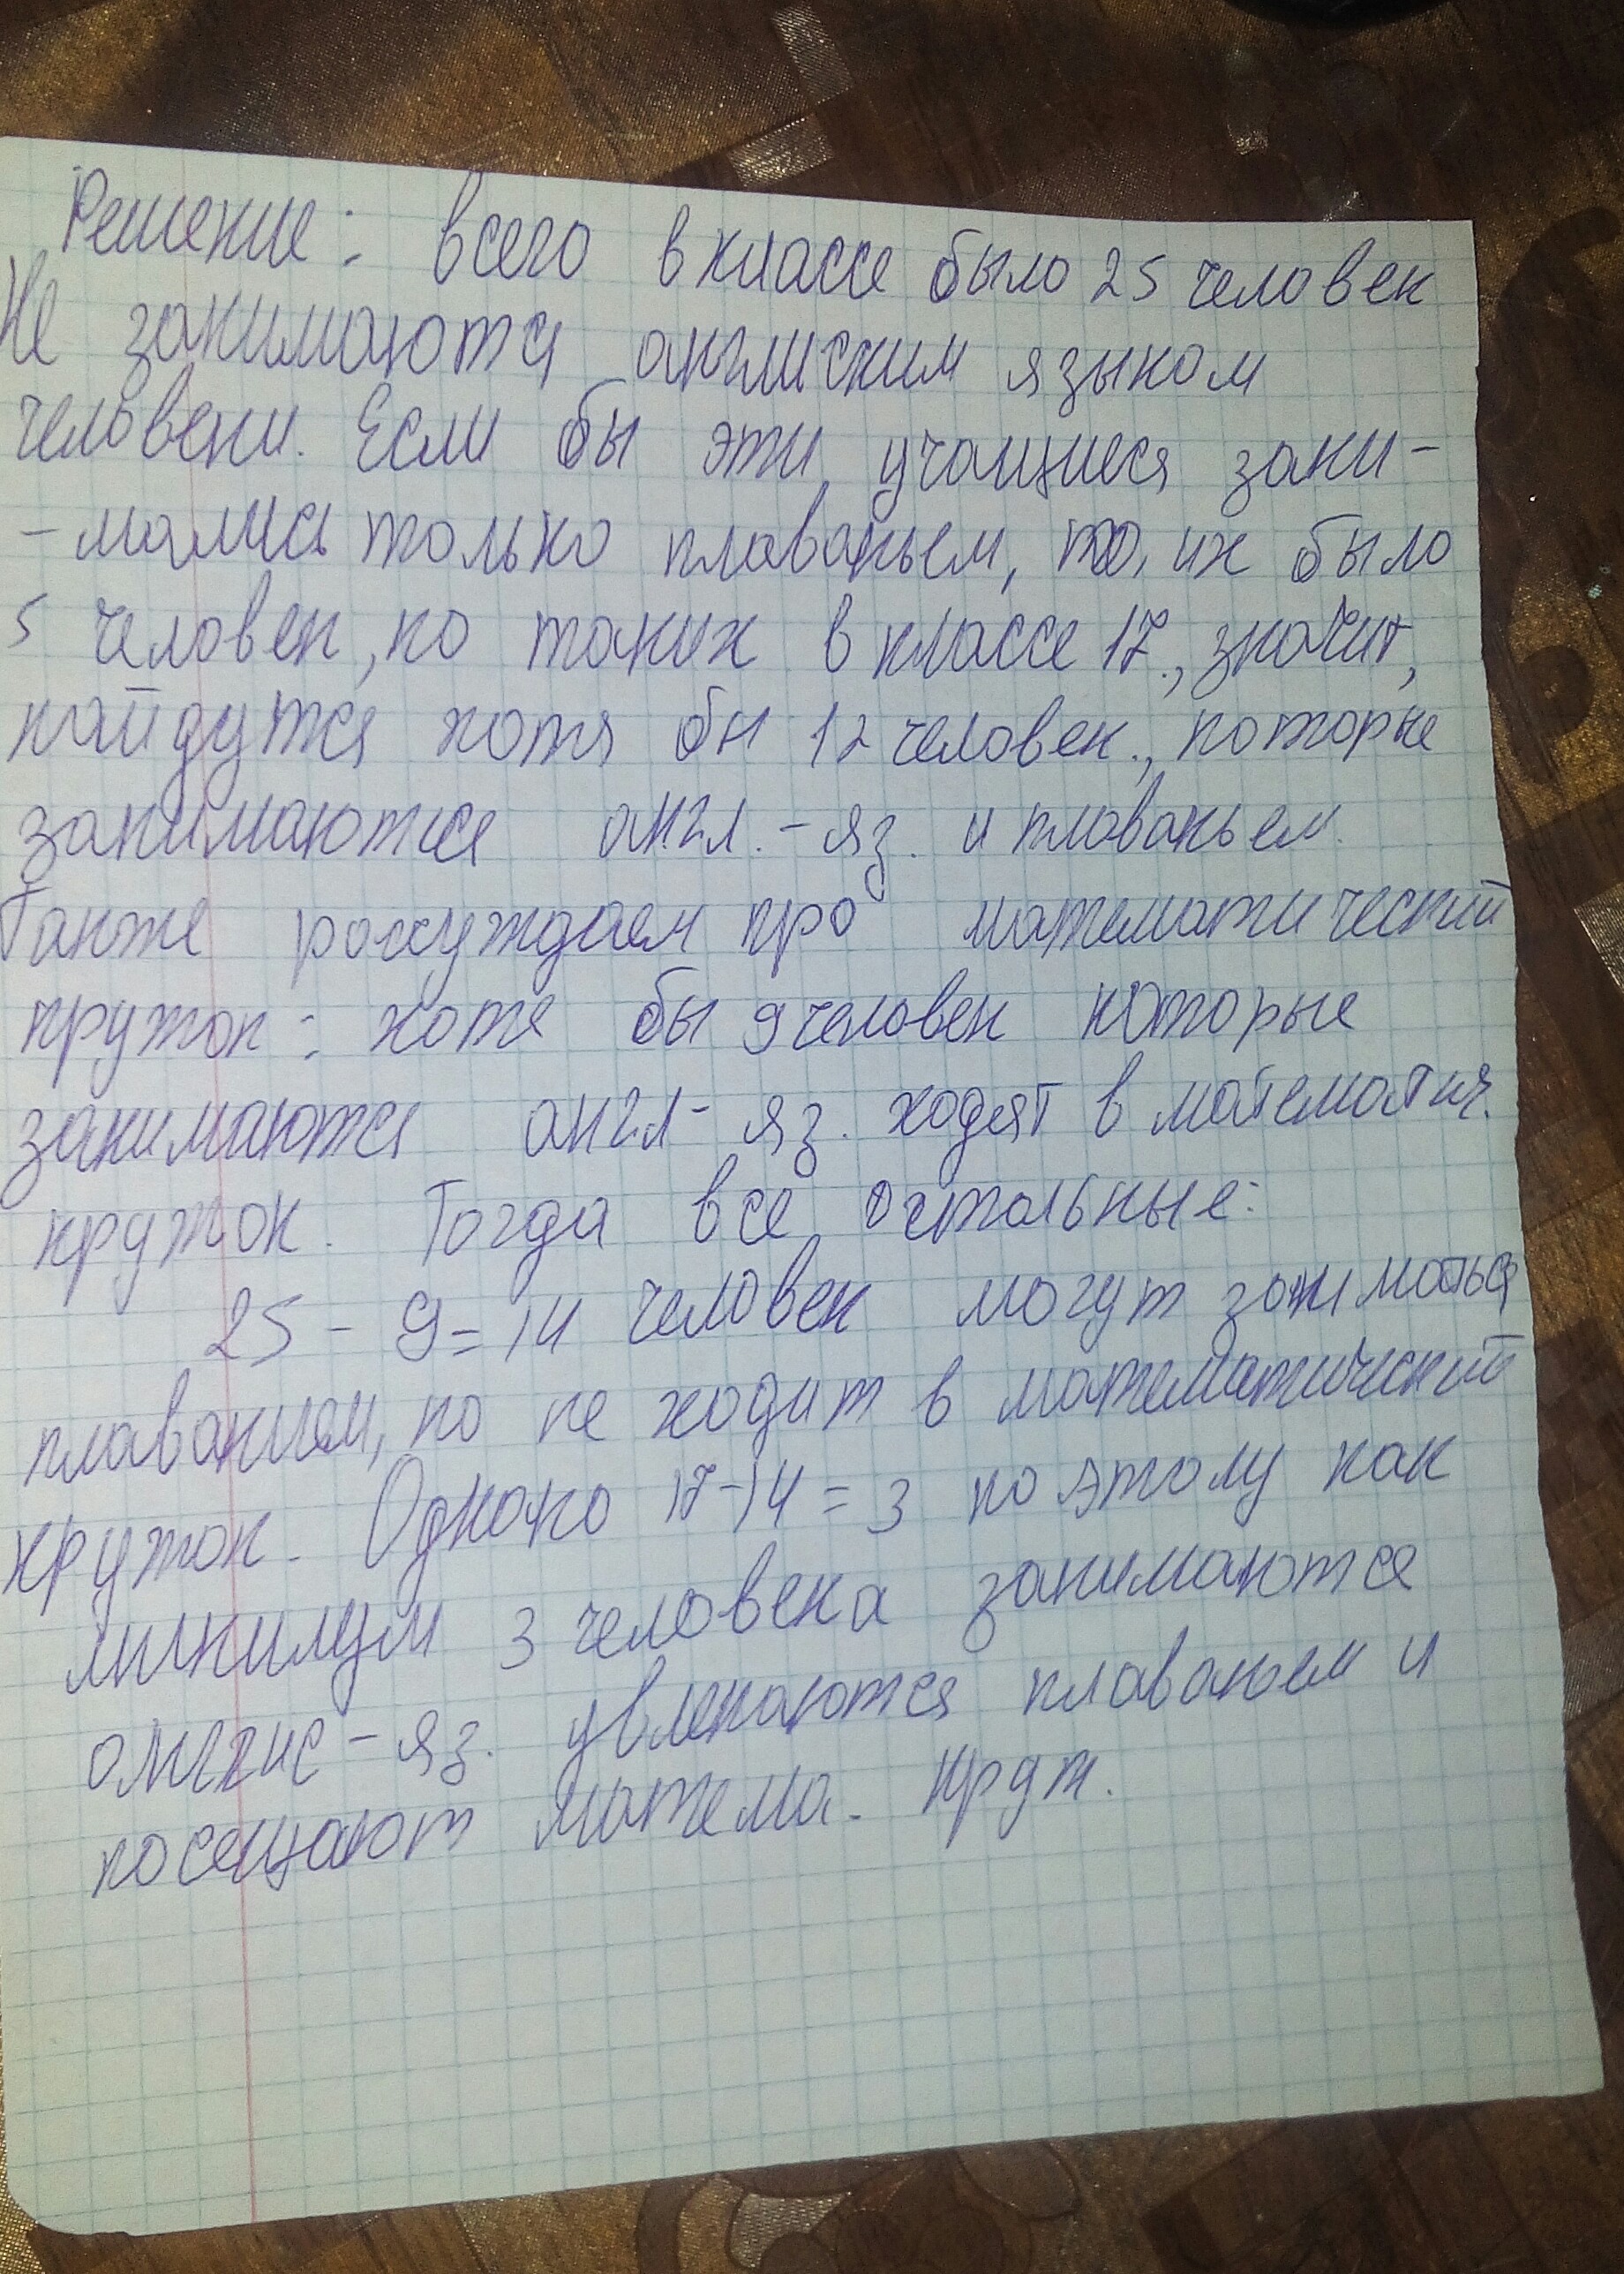 Решение: всего в классе было 25 человек
Не занимаются англиским языком
человеки. Если бы эти учащиеся зани-
-мались только плаваньем, то, их было
5 человек, но таких в классе 17., значит,
найдутся хотя бы 12 человек., которые
занимаются англ.-яз. и плаваньем.
Также рассуждаем про математический
кружок: хотя бы 9 человек которые
занимаются англ- яз. ходят в математич.
кружок. Тогда все остальные:
25 - 9 = 14 человек могут заниматься
плаванием, но не ходит в математический
кружок. Однако 17-14 = 3 поэтому как
минимум 3 человека занимаются
англис-яз. увлекаются плаваньем и
посещают матема. круж.